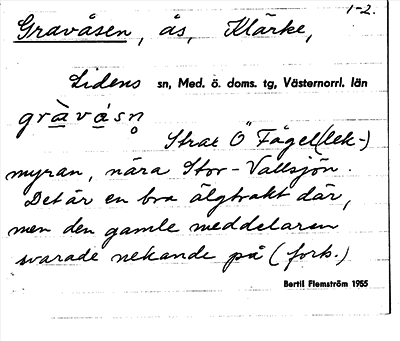 1-2.
Gravåsen, ås, Klärke,
Lidens sn, Med. ö. doms. tg, Västernorrl. län
gràvásn̥
Strax Ö Fågel(lek-)
myran, nära Stor-Vallsjön.
Det är en bra älgtrakt där,
men den gamle meddelaren
svarade nekande på (forts.)
Bertil Flemström 1955